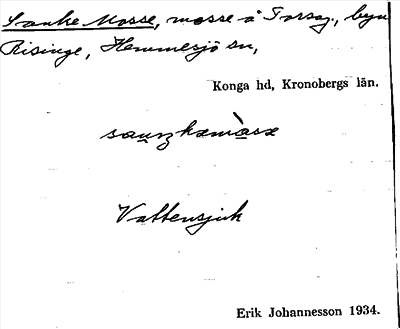 Sanke Mosse, mosse å Torsag., byn
Risinge, Hemmesjö sn,
Konga hd, Kronobergs län.
Vattensjuk
Erik Johannesson 1934.